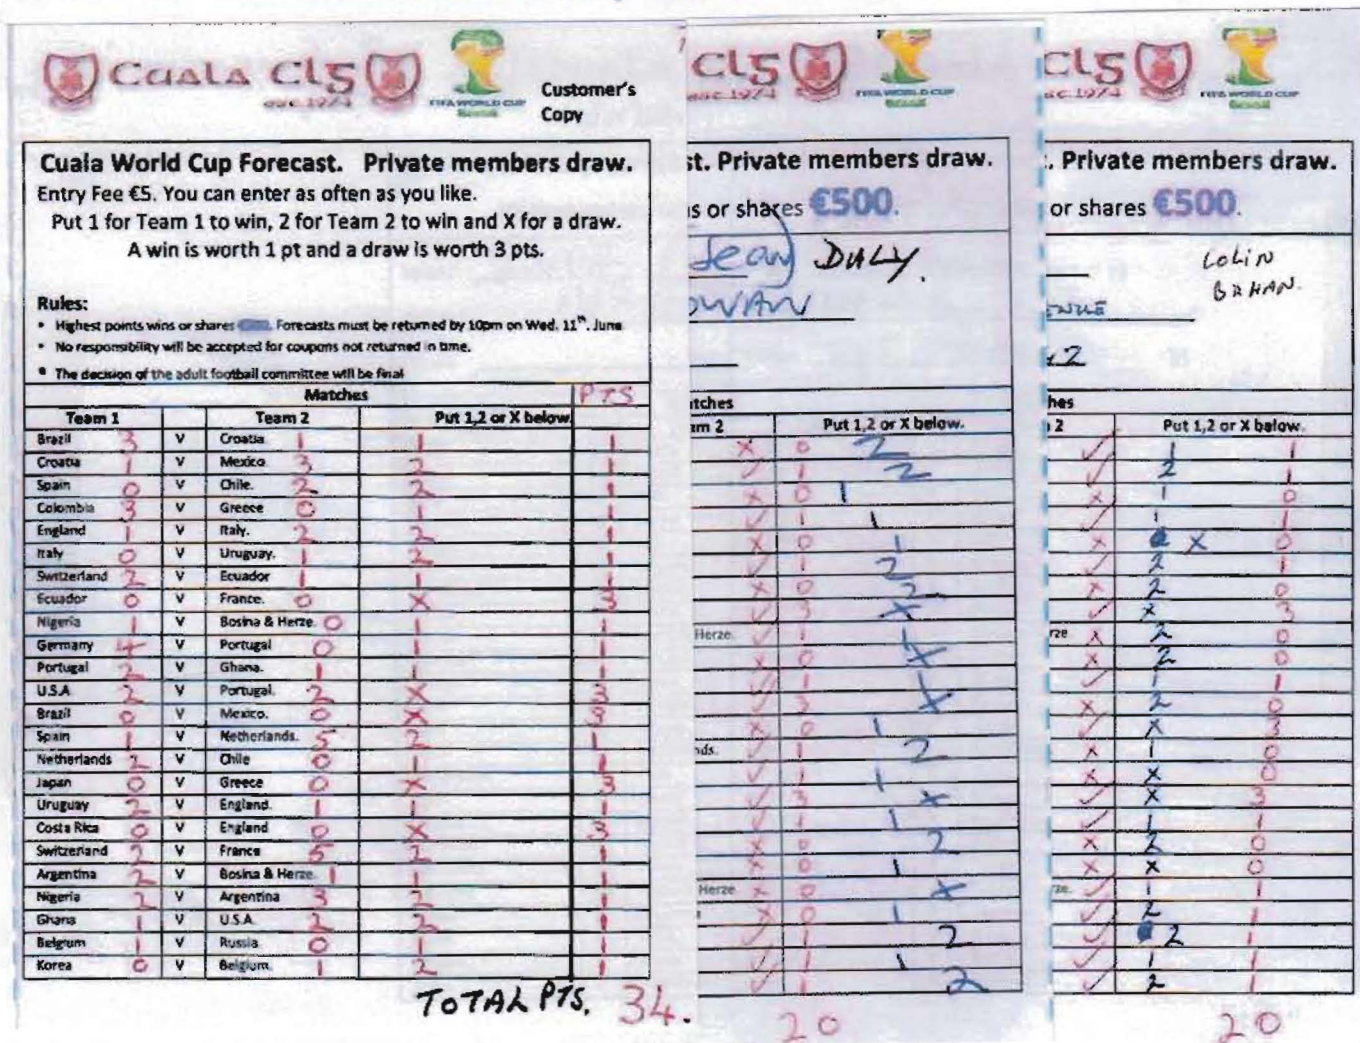 CUALA CLG
est. 1974
FIFA WORLD CUP
Brasil
Customer's
Copy
Cuala World Cup Forecast. Private members draw.
Entry Fee €5. You can enter as often as you like.
Put 1 for Team 1 to win, 2 for Team 2 to win and X for a draw.
A win is worth 1 pt and a draw is worth 3 pts.
Rules:
• Highest points wins or shares €500. Forecasts must be returned by 10pm on Wed. 11th. June
• No responsibility will be accepted for coupons not returned in time.
• The decision of the adult football committee will be final
Matches PTS
Team 1 Team 2 Put 1,2 or X below.
Brazil 3 V Croatia. 1 1 1
Croatia 1 V Mexico. 3 2 1
Spain 0 V Chile. 2 2 1
Colombia 3 V Greece 0 1 1
England 1 V Italy. 2 2 1
Italy 0 V Uruguay. 1 2 1
Switzerland 2 V Ecuador 1 1 1
Ecuador 0 V France. 0 X 3
Nigeria 1 V Bosina & Herze. 0 1 1
Germany 4 V Portugal 0 1 1
Portugal 2 V Ghana. 1 1 1
U.S.A 2 V Portugal. 2 X 3
Brazil 0 V Mexico. 0 X 3
Spain 1 V Netherlands. 5 2 1
Netherlands 2 V Chile 0 1 1
Japan 0 V Greece 0 X 3
Uruguay 2 V England. 1 1 1
Costa Rica 0 V England 0 X 3
Switzerland 2 V France 5 2 1
Argentina 2 V Bosina & Herze. 1 1 1
Nigeria 2 V Argentina 3 2 1
Ghana 1 V U.S.A. 2 2 1
Belgium 1 V Russia 0 1 1
Korea 0 V Belgium. 1 2 1
TOTAL PTS. 34.
CLG
est. 1974
FIFA WORLD CUP
Brasil
st. Private members draw.
ns or shares €500.
Sean DALY.
OWAN
atches
am 2 Put 1,2 or X below.
X 0 2
✓ 1 2
X 0 1
✓ 1 1
X 0 1
✓ 1 2
X 0 2
✓ 3 X
Herze. ✓ 1 1
X 0 X
✓ 1
✓ 3 X
X 0 1
nds. ✓ 1 2
✓ 1 1
✓ 3 X
✓ 1 1
X 0 2
X 0 1
Herze X 0 X
X 0 1
✓ 1 2
✓ 1 1
✓ 1 2
20
CLG
est. 1974
FIFA WORLD CUP
Brasil
. Private members draw.
or shares €500.
COLIN
ENUE
2
hes
2 Put 1,2 or X below.
✓ 1 1
✓ 2 1
X 1 0
✓ 1 1
X X 0
✓ 2 1
X 2 0
✓ X 3
rze X 2 0
X 2 0
✓ 1 1
X 2 0
✓ X 3
X 1 0
X X 0
✓ X 3
✓ 1 1
X 2 0
X X 0
ze. ✓ 1 1
✓ 2 1
✓ 2 1
✓ 1 1
✓ 2 1
20